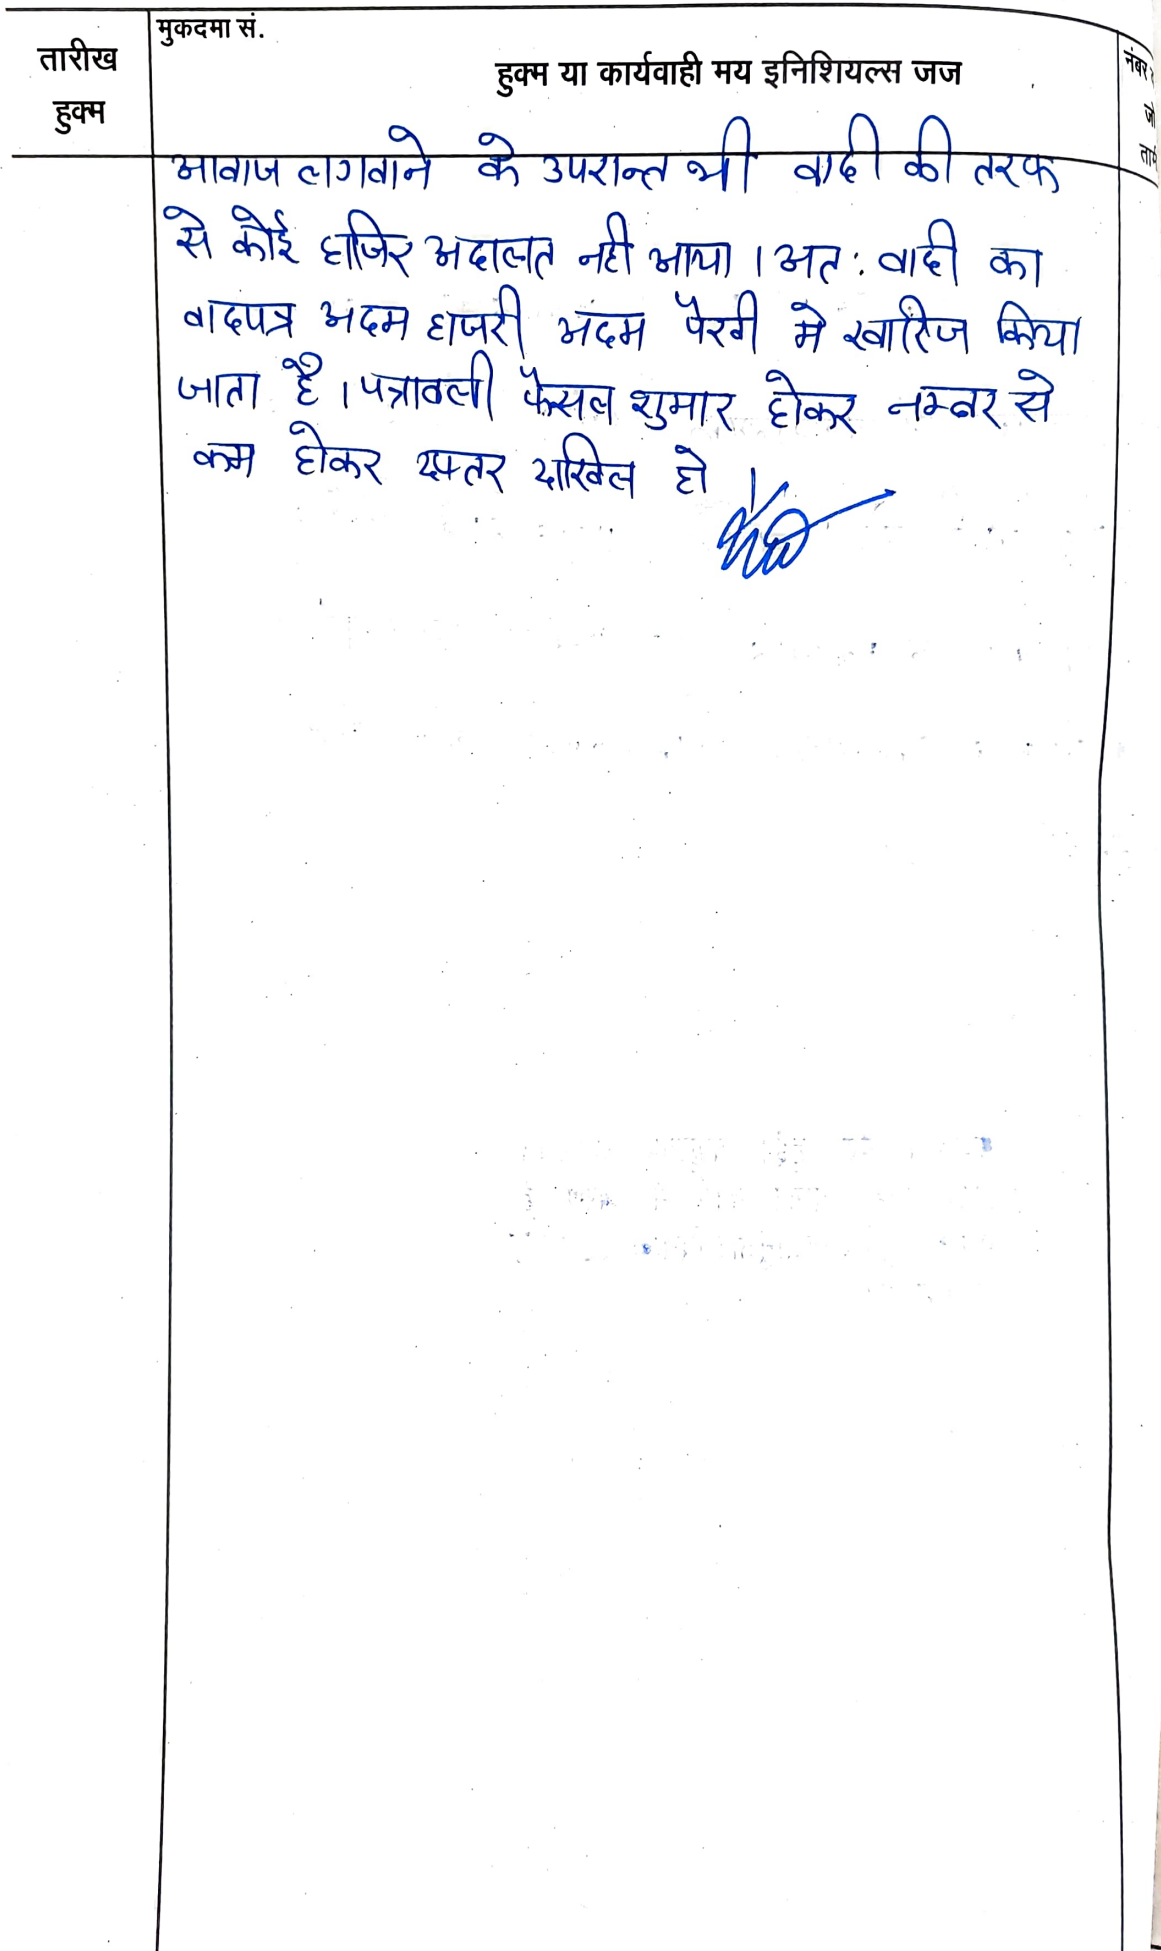 मुकदमा सं.
तारीख
हुक्म
हुक्म या कार्यवाही मय इनिशियल्स जज
नंबर
आवाज लगवाने के उपरान्त भी वादी की तरफ
से कोई हाजिर अदालत नही आया । अत: वादी का
वादपत्र अदम हाजरी अदम पैरवी मे खारिज किया
जाता है । पत्रावली फैसल शुमार होकर नम्बर से
कम होकर दफ्तर दाखिल हो